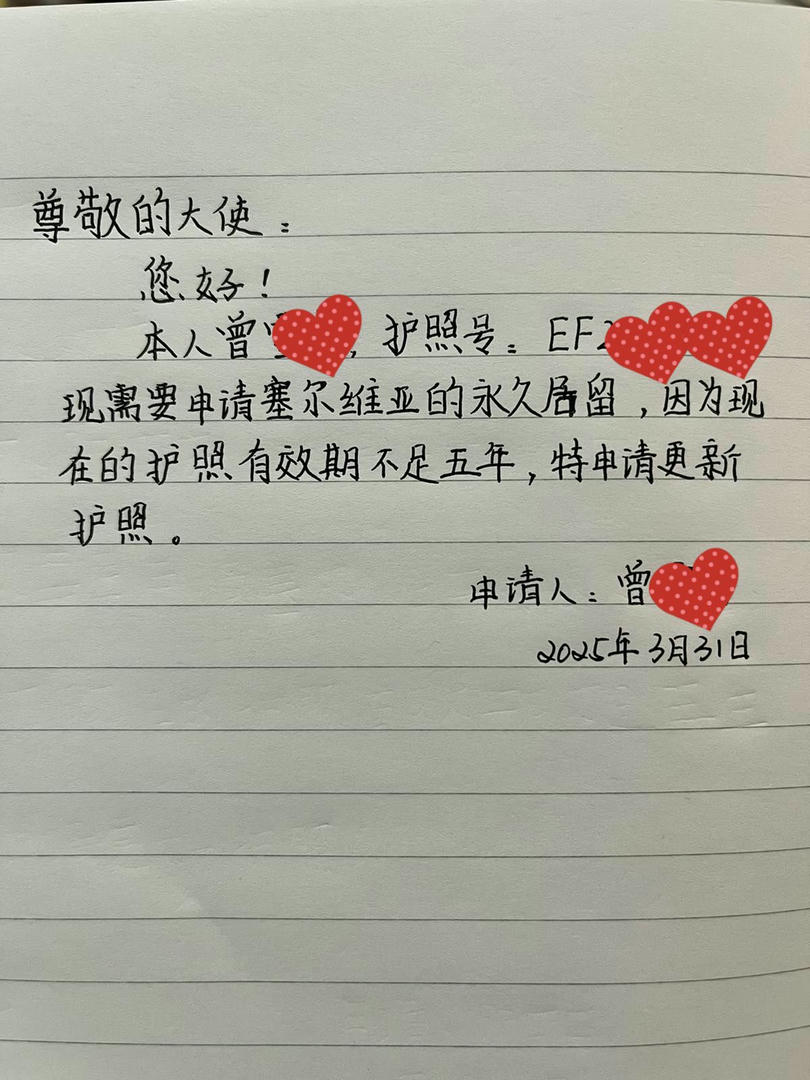 尊敬的大使：
您好！
本人曾，护照号：EF2
现需要申请塞尔维亚的永久居留，因为现
在的护照有效期不足五年，特申请更新
护照。
申请人：曾
2025年3月31日